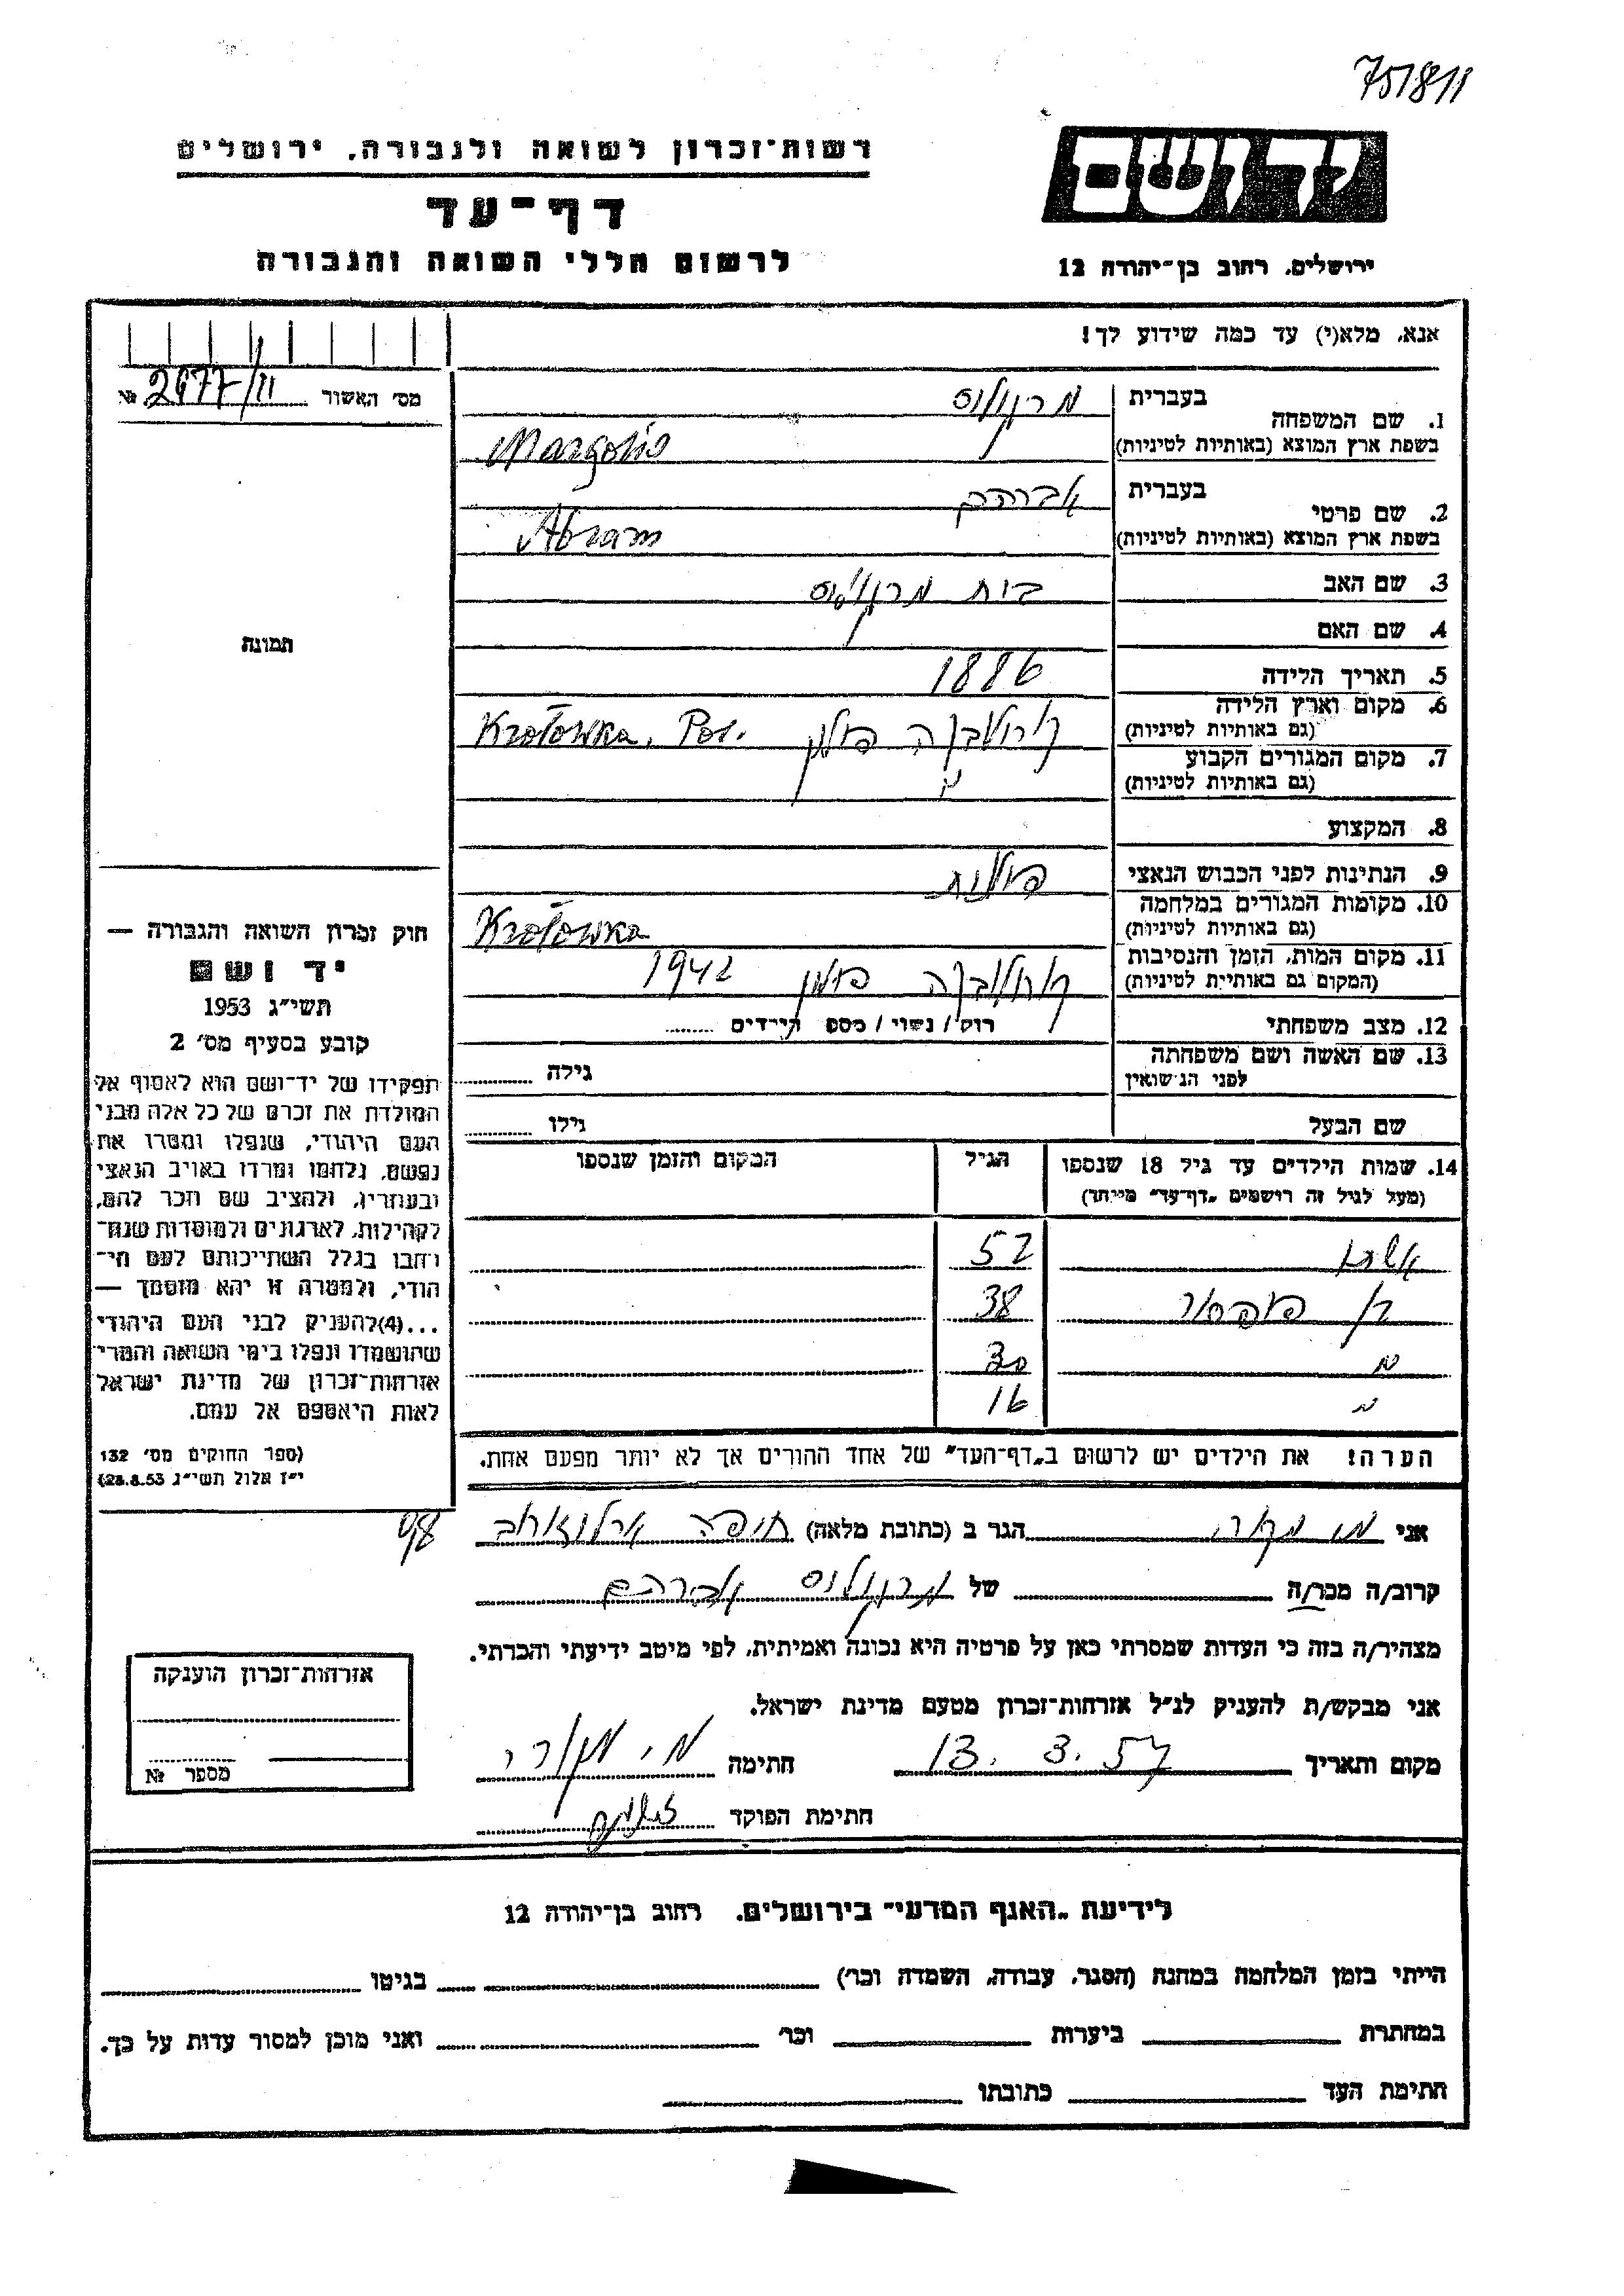 751811
רשות-זכרון לשואה ולגבורה, ירושלים
יד ושם
דף-עד
לרשום חללי השואה והגבורה
ירושלים, רחוב בן-יהודה 12
אנא, מלא(י) עד כמה שידוע לך!
מס' האשור № 2977/11
1. שם המשפחה בעברית מרגוליס
בשפת ארץ המוצא (באותיות לטיניות) Margolis
2. שם פרטי בעברית אברהם
בשפת ארץ המוצא (באותיות לטיניות) Abram
3. שם האב מרגוליס
4. שם האם
תמונה
5. תאריך הלידה 1886
6. מקום וארץ הלידה
(גם באותיות לטיניות) פולין Krotowka, Pol.
7. מקום המגורים הקבוע
(גם באותיות לטיניות) "
8. המקצוע
9. הנתינות לפני הכבוש הנאצי פולנית
10. מקומות המגורים במלחמה
(גם באותיות לטיניות) Krotowka
11. מקום המות, הזמן והנסיבות
(המקום גם באותיות לטיניות) פולין 1942
12. מצב משפחתי רווק / נשוי / מספר הילדים
13. שם האשה ושם משפחתה
לפני הנישואין גילה
שם הבעל גילו
14. שמות הילדים עד גיל 18 שנספו הגיל המקום והזמן שנספו
(מעל לגיל זה רושמים "דף-עד" מיוחד)
אשתו 52
38
" 30
" 16
הערה! את הילדים יש לרשום ב"דף-העד" של אחד ההורים אך לא יותר מפעם אחת.
חוק זכרון השואה והגבורה —
יד ושם
תשי"ג 1953
קובע בסעיף מס' 2
תפקידו של יד-ושם הוא לאסוף אל
המולדת את זכרם של כל אלה מבני
העם היהודי, שנפלו ומסרו את
נפשם, נלחמו ומרדו באויב הנאצי
ובעוזריו, ולהציב שם וזכר להם,
לקהילות, לארגונים ולמוסדות שנח-
רבו בגלל השתייכותם לעם הי-
הודי, ולמטרה זו יהא מוסמך —
...(4) להעניק לבני העם היהודי
שהושמדו ונפלו בימי השואה והמרי
אזרחות-זכרון של מדינת ישראל
לאות היאספם אל עמם.
(ספר החוקים מס' 132
י"ז אלול תשי"ג 28.8.53)
אני הגר ב (כתובת מלאה) חיפה ארלוזורוב 98
קרוב/ה מכר/ה של מרגוליס אברהם
מצהיר/ה בזה כי העדות שמסרתי כאן על פרטיה היא נכונה ואמיתית, לפי מיטב ידיעתי והכרתי.
אני מבקש/ת להעניק לנ"ל אזרחות-זכרון מטעם מדינת ישראל.
מקום ותאריך 13. 3. 57 חתימה
חתימת הפוקד
אזרחות-זכרון הוענקה
מספר №
לידיעת "האגף המדעי" בירושלים, רחוב בן-יהודה 12
הייתי בזמן המלחמה במחנה (הסגר, עבודה, השמדה וכו') בגיטו
במחתרת ביערות וכו' ואני מוכן למסור עדות על כך.
חתימת העד כתובתו